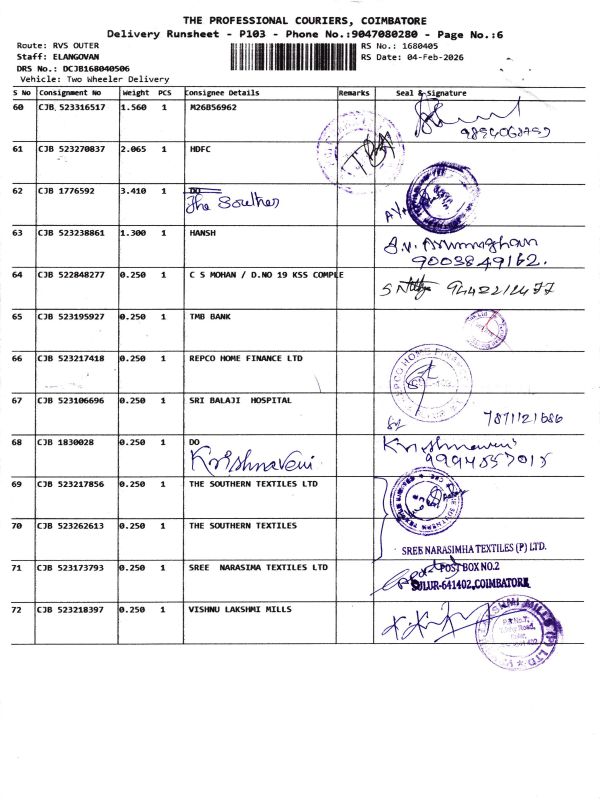 THE PROFESSIONAL COURIERS, COIMBATORE
Delivery Runsheet - P103 - Phone No.:9047080280 - Page No.:6
Route: RVS OUTER RS No.: 1680405
Staff: ELANGOVAN RS Date: 04-Feb-2026
DRS No.: DCJB168040506
Vehicle: Two Wheeler Delivery
S No Consignment No Weight PCS Consignee Details Remarks Seal & Signature
60 CJB 523316517 1.560 1 M26B56962
61 CJB 523270837 2.065 1 HDFC
62 CJB 1776592 3.410 1 DO
The Southern
63 CJB 523238861 1.300 1 HANSH
9003849162.
64 CJB 522848277 0.250 1 C S MOHAN / D.NO 19 KSS COMPLE
65 CJB 523195927 0.250 1 TMB BANK
66 CJB 523217418 0.250 1 REPCO HOME FINANCE LTD
67 CJB 523106696 0.250 1 SRI BALAJI HOSPITAL
7871121686
68 CJB 1830028 0.250 1 DO Krishnaveni
Krishnaveni
9994557015
69 CJB 523217856 0.250 1 THE SOUTHERN TEXTILES LTD
70 CJB 523262613 0.250 1 THE SOUTHERN TEXTILES
SREE NARASIMHA TEXTILES (P) LTD.
71 CJB 523173793 0.250 1 SREE NARASIMA TEXTILES LTD POST BOX NO.2
SULUR-641402, COIMBATORE
72 CJB 523218397 0.250 1 VISHNU LAKSHMI MILLS